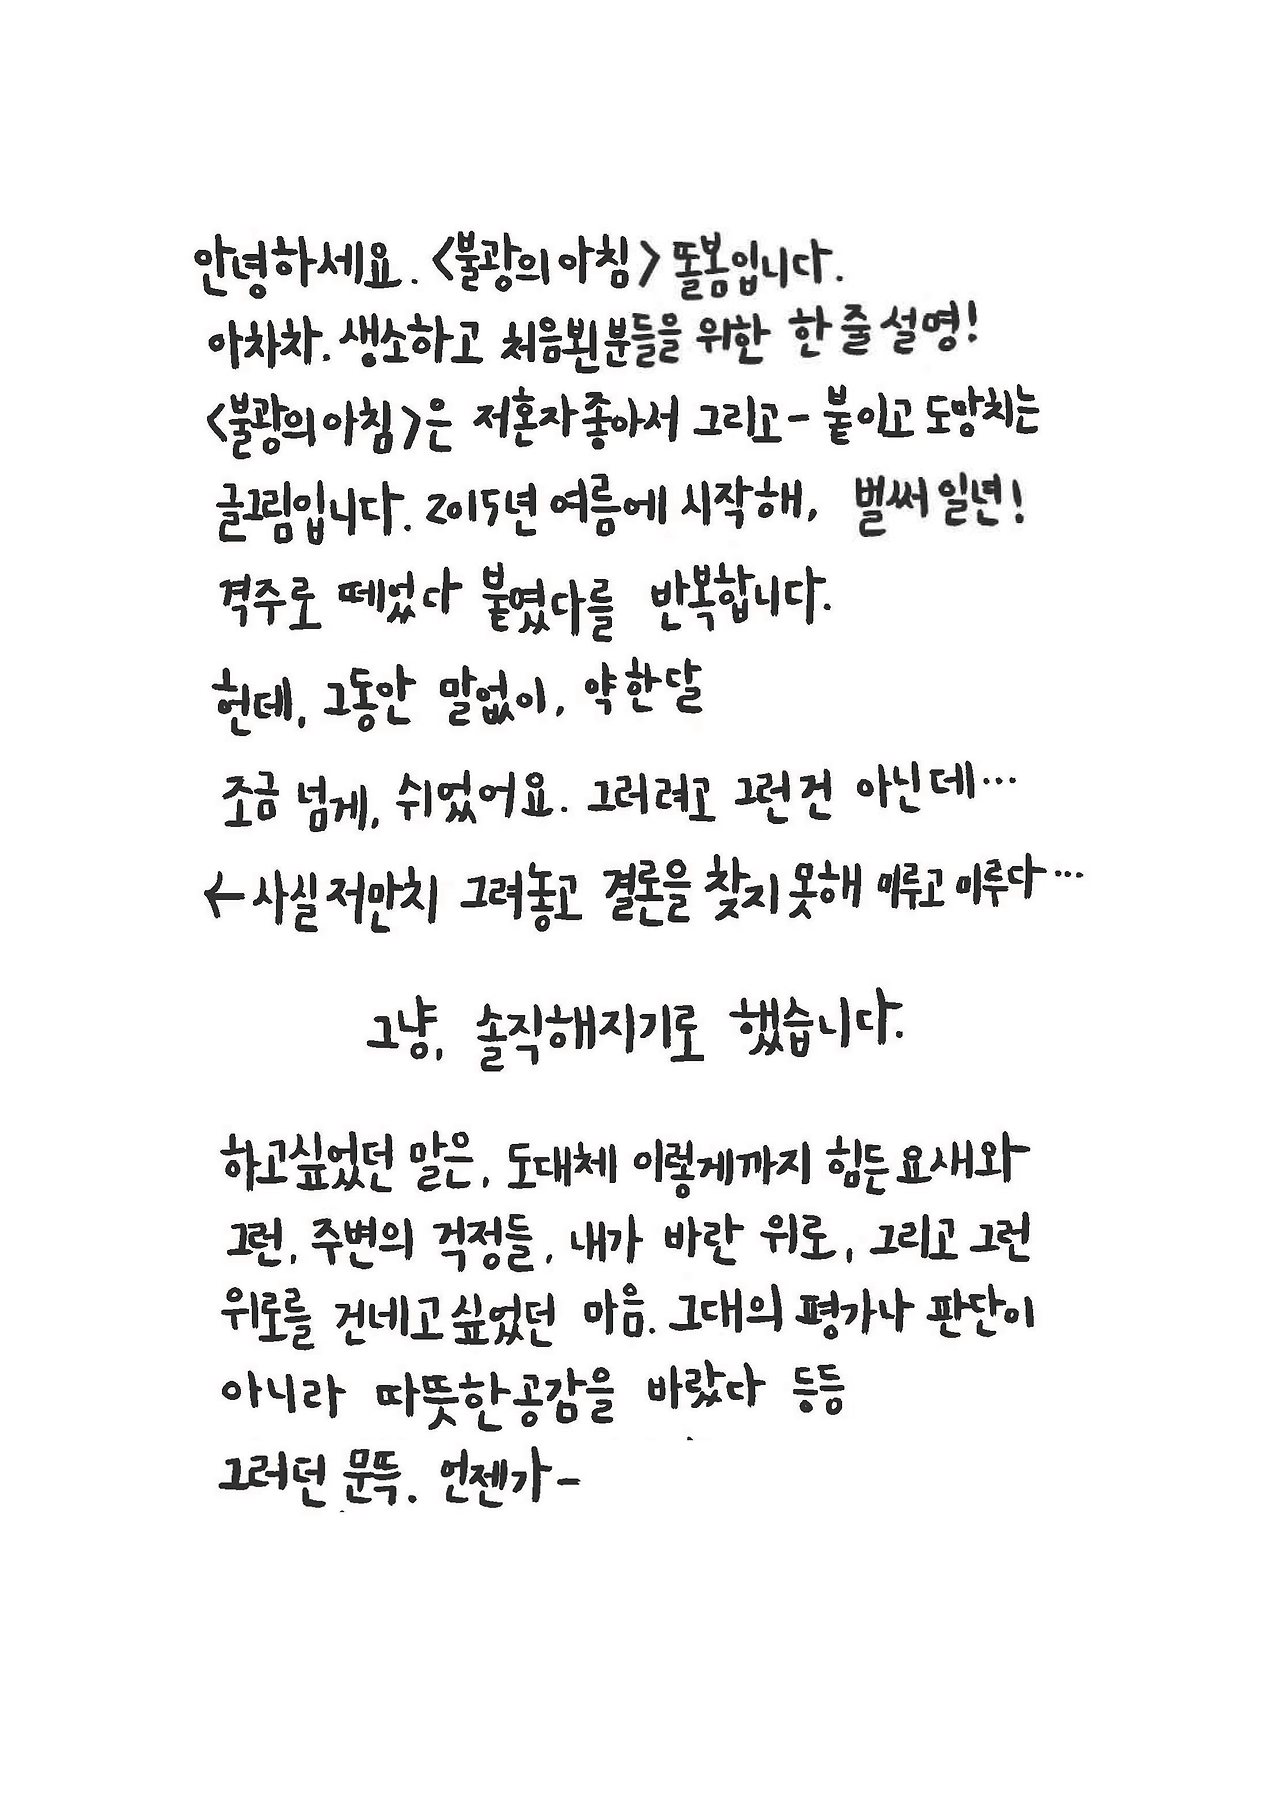 안녕하세요. <불광의 아침> 똘봄입니다.
아차차. 생소하고 처음뵌분들을 위한 한 줄 설명!
<불광의 아침>은 저혼자좋아서 그리고- 붙이고 도망치는
글그림입니다. 2015년 여름에 시작해, 벌써 일년!
격주로 떼었다 붙였다를 반복합니다.
헌데, 그동안 말없이, 약 한달
조금 넘게, 쉬었어요. 그러려고 그런건 아닌데…
←사실 저만치 그려놓고 결론을 찾지 못해 미루고 미루다…
그냥, 솔직해지기로 했습니다.
하고싶었던 말은, 도대체 이렇게까지 힘든 요새와
그런, 주변의 걱정들, 내가 바란 위로, 그리고 그런
위로를 건네고싶었던 마음. 그대의 평가나 판단이
아니라 따뜻한 공감을 바랐다 등등
그러던 문뜩. 언젠가-